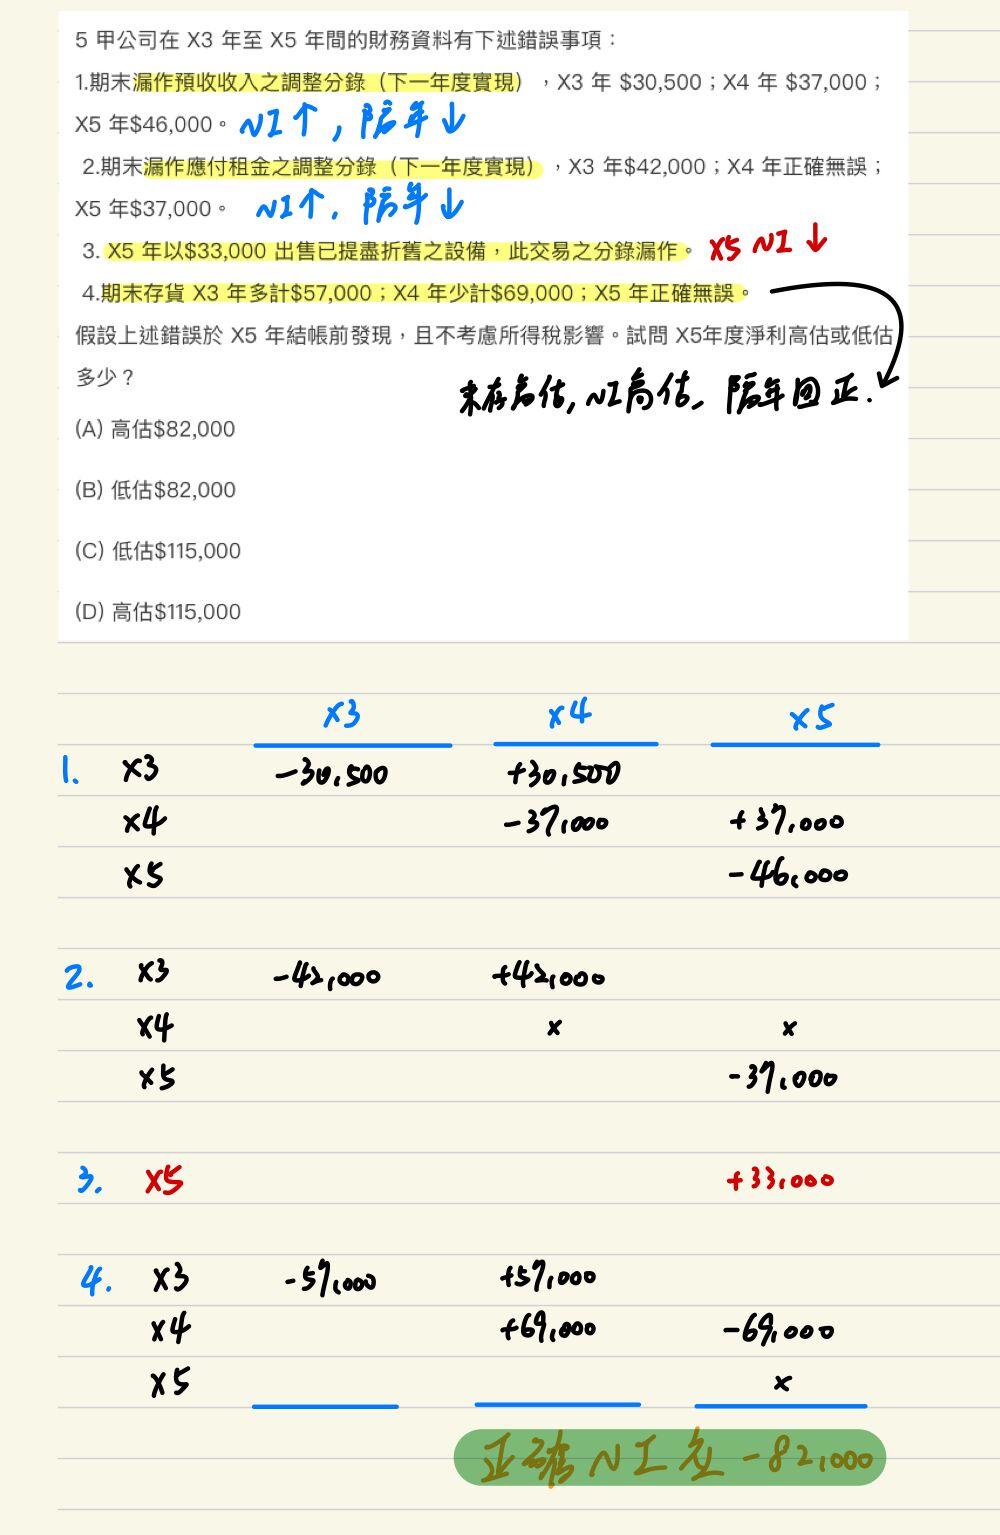 5 甲公司在 X3 年至 X5 年間的財務資料有下述錯誤事項：
1.期末漏作預收收入之調整分錄（下一年度實現），X3 年 $30,500；X4 年 $37,000；
X5 年$46,000。 NI↑, 隔年↓
2.期末漏作應付租金之調整分錄（下一年度實現），X3 年$42,000；X4 年正確無誤；
X5 年$37,000。 NI↑. 隔年↓
3. X5 年以$33,000 出售已提盡折舊之設備，此交易之分錄漏作。 X5 NI↓
4.期末存貨 X3 年多計$57,000；X4 年少計$69,000；X5 年正確無誤。
假設上述錯誤於 X5 年結帳前發現，且不考慮所得稅影響。試問 X5年度淨利高估或低估
多少？
末存高估, NI高估, 隔年回正.
(A) 高估$82,000
(B) 低估$82,000
(C) 低估$115,000
(D) 高估$115,000
X3 X4 X5
1. X3 -30,500 +30,500
X4 -37,000 +37,000
X5 -46,000
2. X3 -42,000 +42,000
X4 x x
X5 -37,000
3. X5 +33,000
4. X3 -57,000 +57,000
X4 +69,000 -69,000
X5 x
正確NI差 -82,000